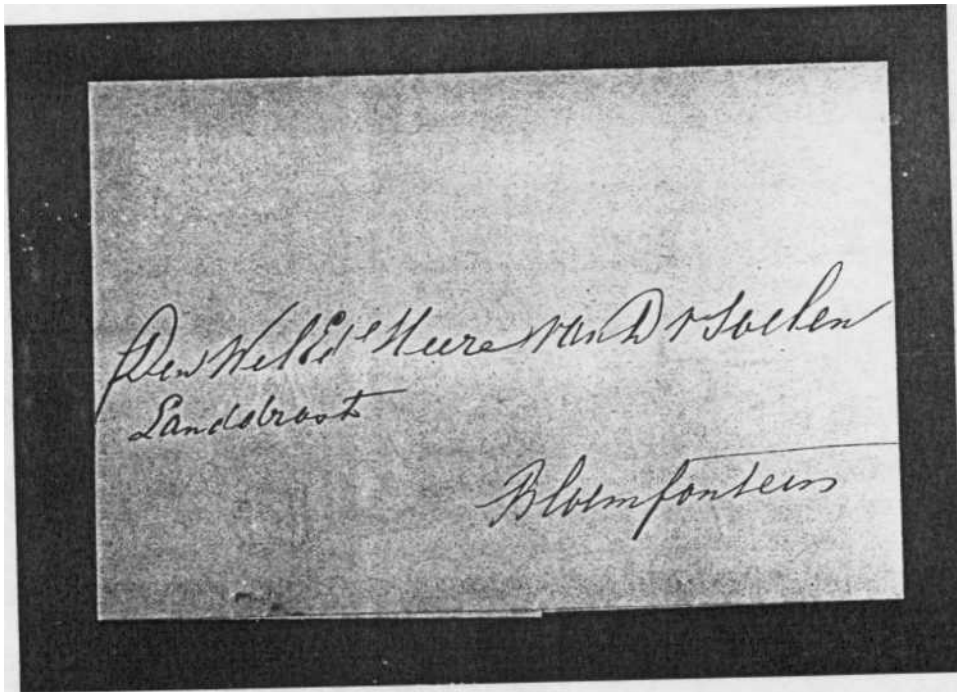 Den Wel Ed^le Heere van D v Soelen
Landdrost
Bloemfontein